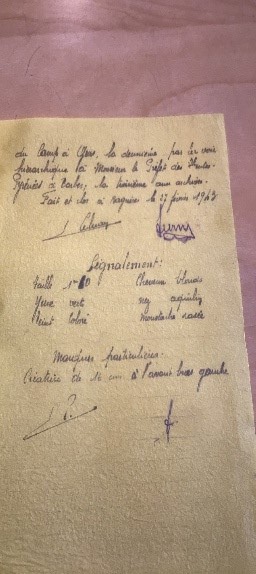 du Camp à Gers, la deuxième par la voie
hiérarchique à Monsieur le Préfet des Hautes-
Pyrénées à Tarbes, la troisième aux archives.
Fait et clos à le 27 février 1943
Signalement:
Taille 1m60 Cheveux blonds
Yeux vert nez aquilin
Teint coloré Moustache rasée
Marques particulières.
Cicatrice de cm à l'avant bras gauche